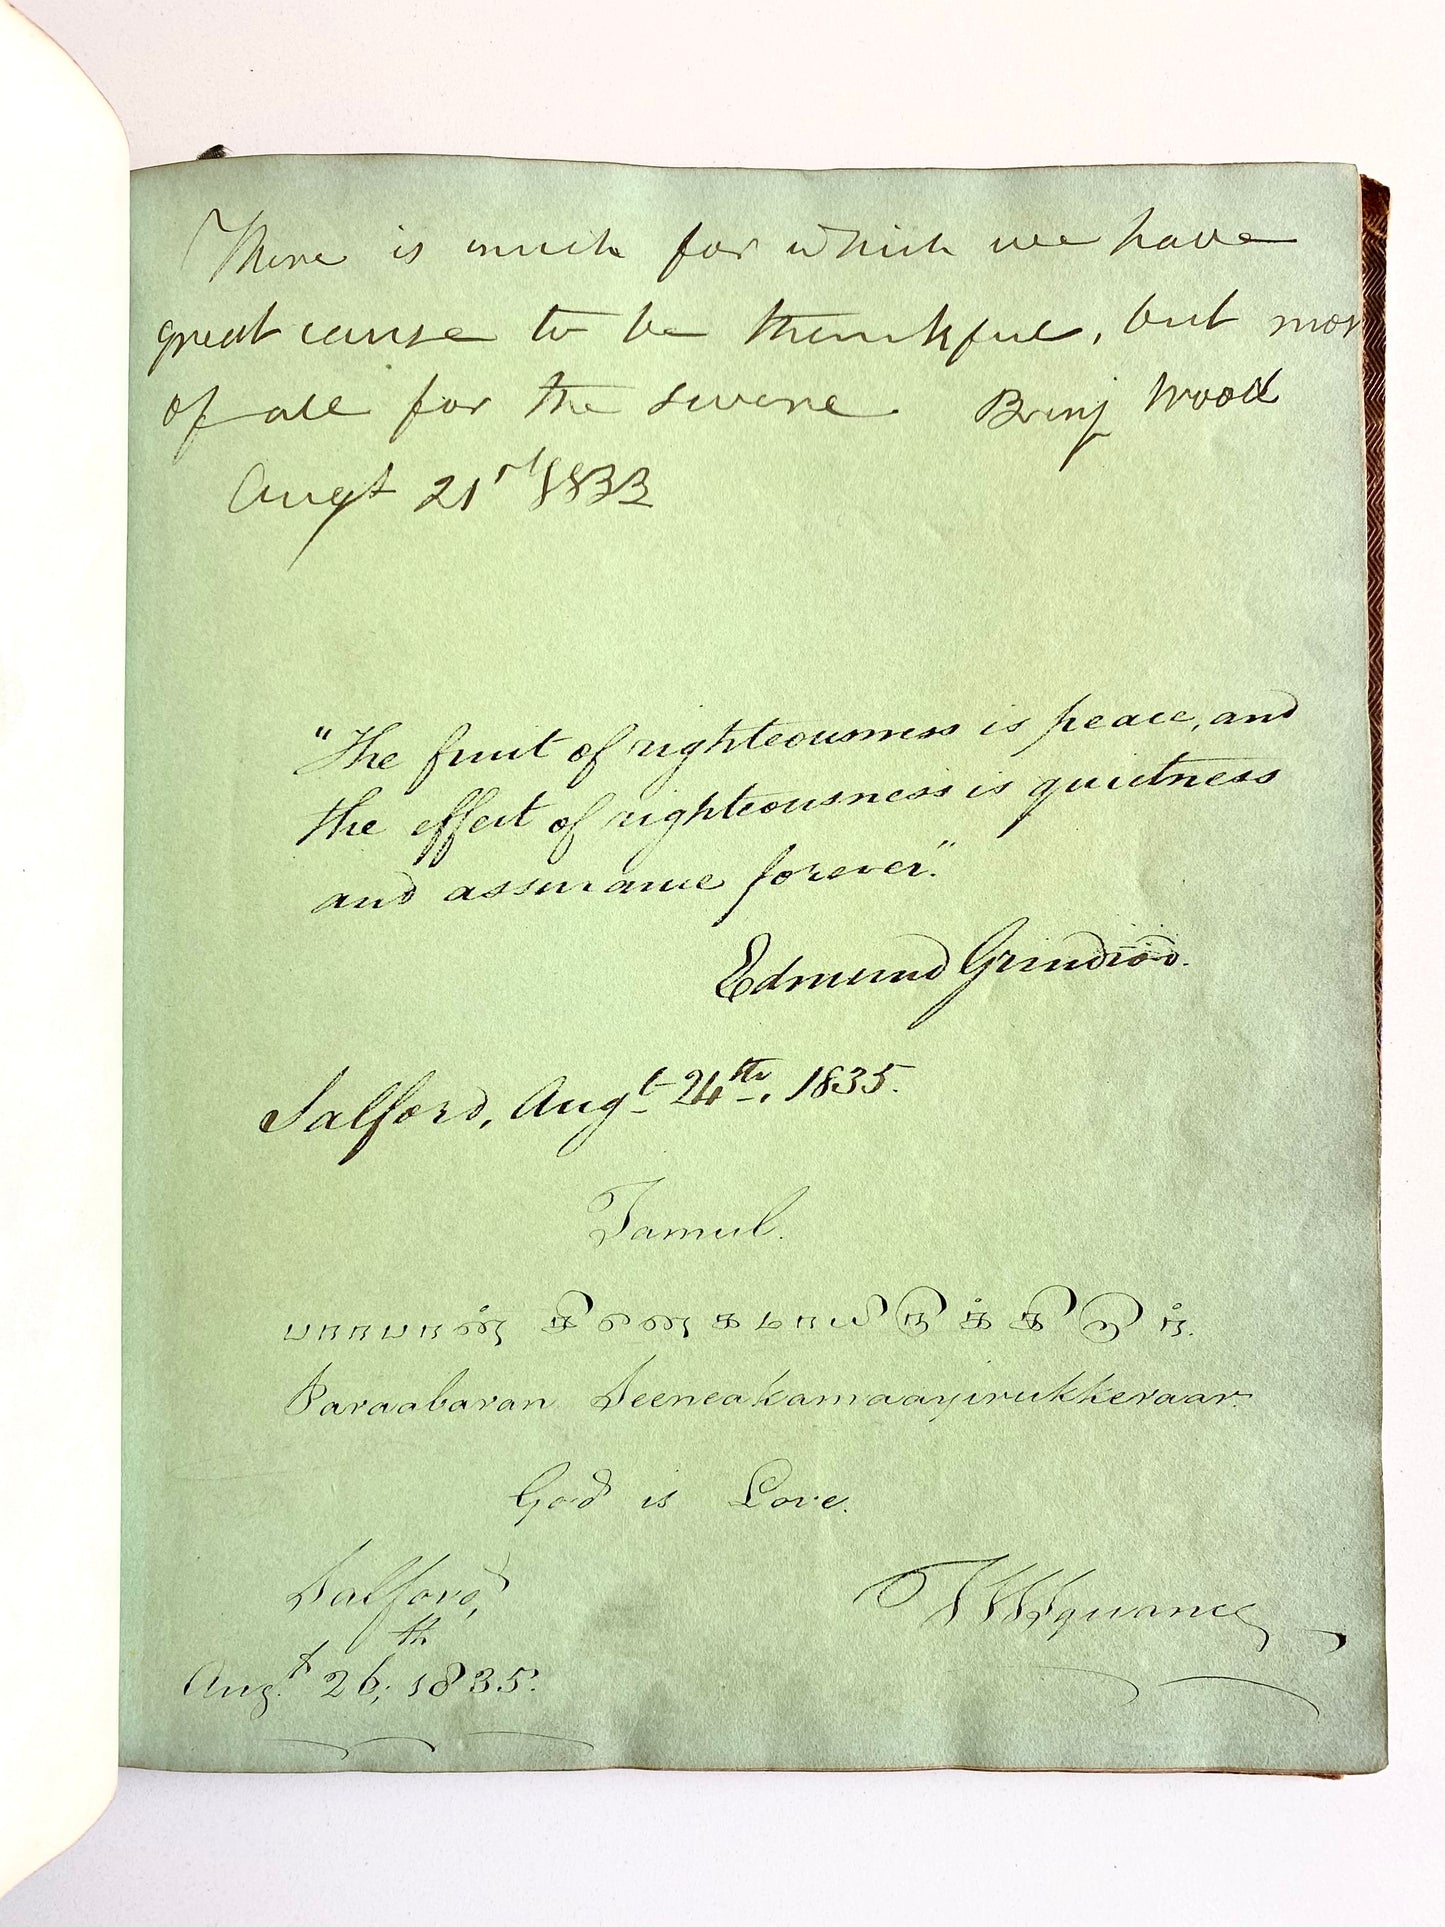 There is much for which we have
great cause to be thankful, but mor
of all for the Benj Wood
Augt 21st 1833
"The fruit of righteousness is peace, and
the effect of righteousness is quietness
and assurance forever."
Edmund Grindrod.
Salford, Augt 24th, 1835.
Tamul.
பராபரன்
Paraabaran Seeneakamaayirukkeraar.
God is Love.
Salford,
Augt 26th, 1835.